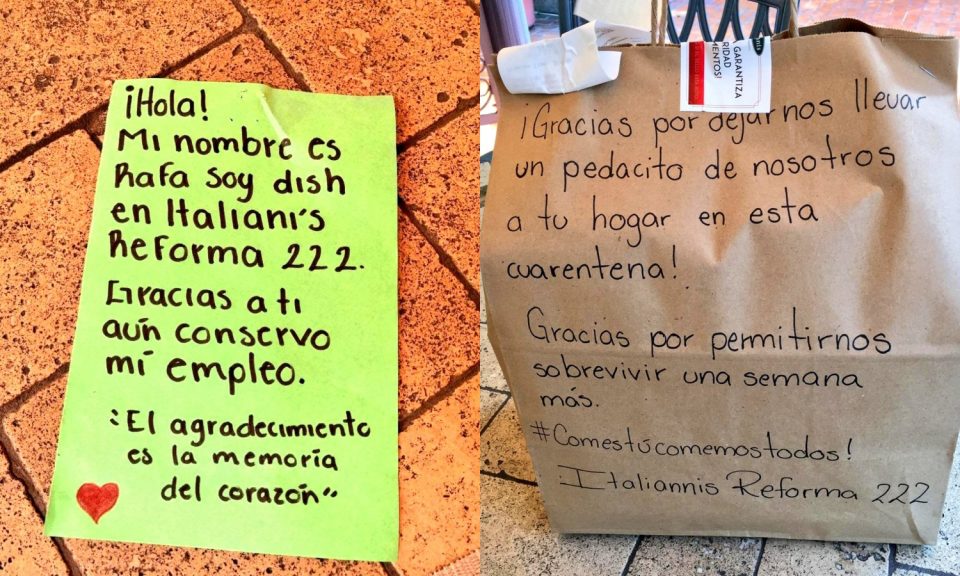 ¡Hola!
Mi nombre es
Rafa soy dish
en Italiani's
Reforma 222.
Gracias a ti
aún conservo
mi empleo.
"El agradecimiento
es la memoria
del corazón"
GARANTIZA
RIDAD
MENTOS!
¡Gracias por dejarnos llevar
un pedacito de nosotros
a tu hogar en esta
cuarentena!
Gracias por permitirnos
sobrevivir una semana
más.
#Comestúcomemostodos!
Italiannis Reforma 222